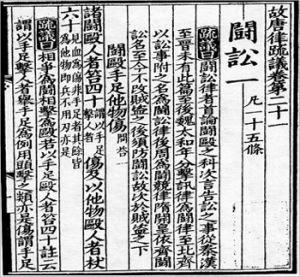 故唐律疏議卷第二十一
鬪訟一 凡一十五條
疏議曰鬪訟律者首論鬪毆之科次言告訟之事從秦漢
至晉未有此篇至後魏太和年分擊訊律為鬪律至北齊
以訟事附之名為鬪訟律後周為鬪競律隋開皇依齊鬪
訟名至今不改賊盜之後須防鬪訟故次於賊盜之下
鬪毆手足他物傷 問答一
諸鬪毆人者笞四十謂以手足擊人者傷及以他物毆人者杖
六十見血為傷非手足者其餘皆為他物即兵不用刃亦是
疏議曰相爭為鬪相擊為毆若以手足毆人者笞四十註云
謂以手足擊人者舉手足為例用頭擊之類亦是傷謂手足